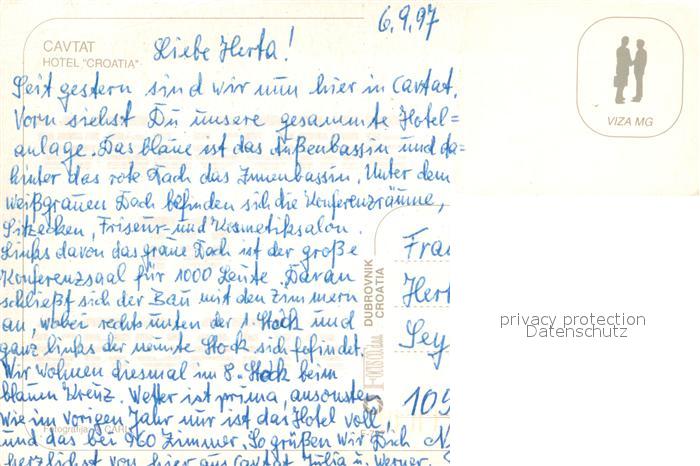 6.9.97
CAVTAT
HOTEL "CROATIA"
Liebe Herta!
Seit gestern sind wir nun hier in Cavtat.
Vorn siehst Du unsere gesammte Hotel=
anlage. Das blaue ist das Außenbassin und da=
hinter das rote Dach das Innenbassin. Unter dem
weißgrauen Dach befinden sich die Konferenzräume,
Sitzecken, Friseur- und Kosmetiksalon.
Links davon das graue Dach ist der große
Konferenzsaal für 1000 Leute. Daran
schließt sich der Bau mit den Zimmern
an, wobei rechts unten der 1. Stock und
ganz links der neunte Stock sich befindet.
Wir wohnen diesmal im 8. Stock beim
blauen Kreuz. Wetter ist prima, ansonsten
wie im vorigen Jahr nur ist das Hotel voll,
und das bei 960 Zimmer. So grüßen wir Dich
herzlichst von hier aus Cavtat Julia u. Werner.
VIZA MG
DUBROVNIK
CROATIA
Frau
Hert
Sey
109
privacy protection
Datenschutz